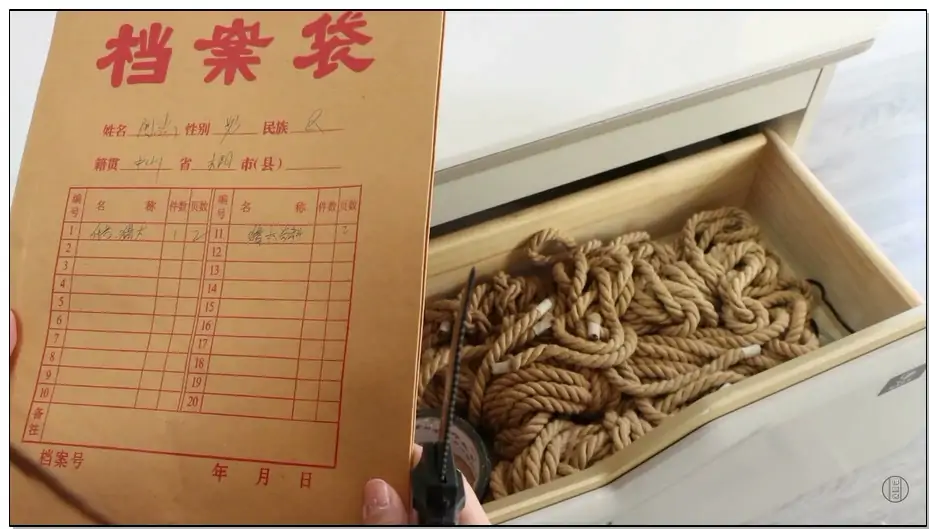 档案袋
姓名 性别 男 民族 汉
籍贯 四川 省 市(县)
编号 名 称 件数 页数 编号 名 称 件数 页数
1 1 2 11 2
2 12
3 13
4 14
5 15
6 16
7 17
8 18
9 19
10 20
备注
档案号 年 月 日